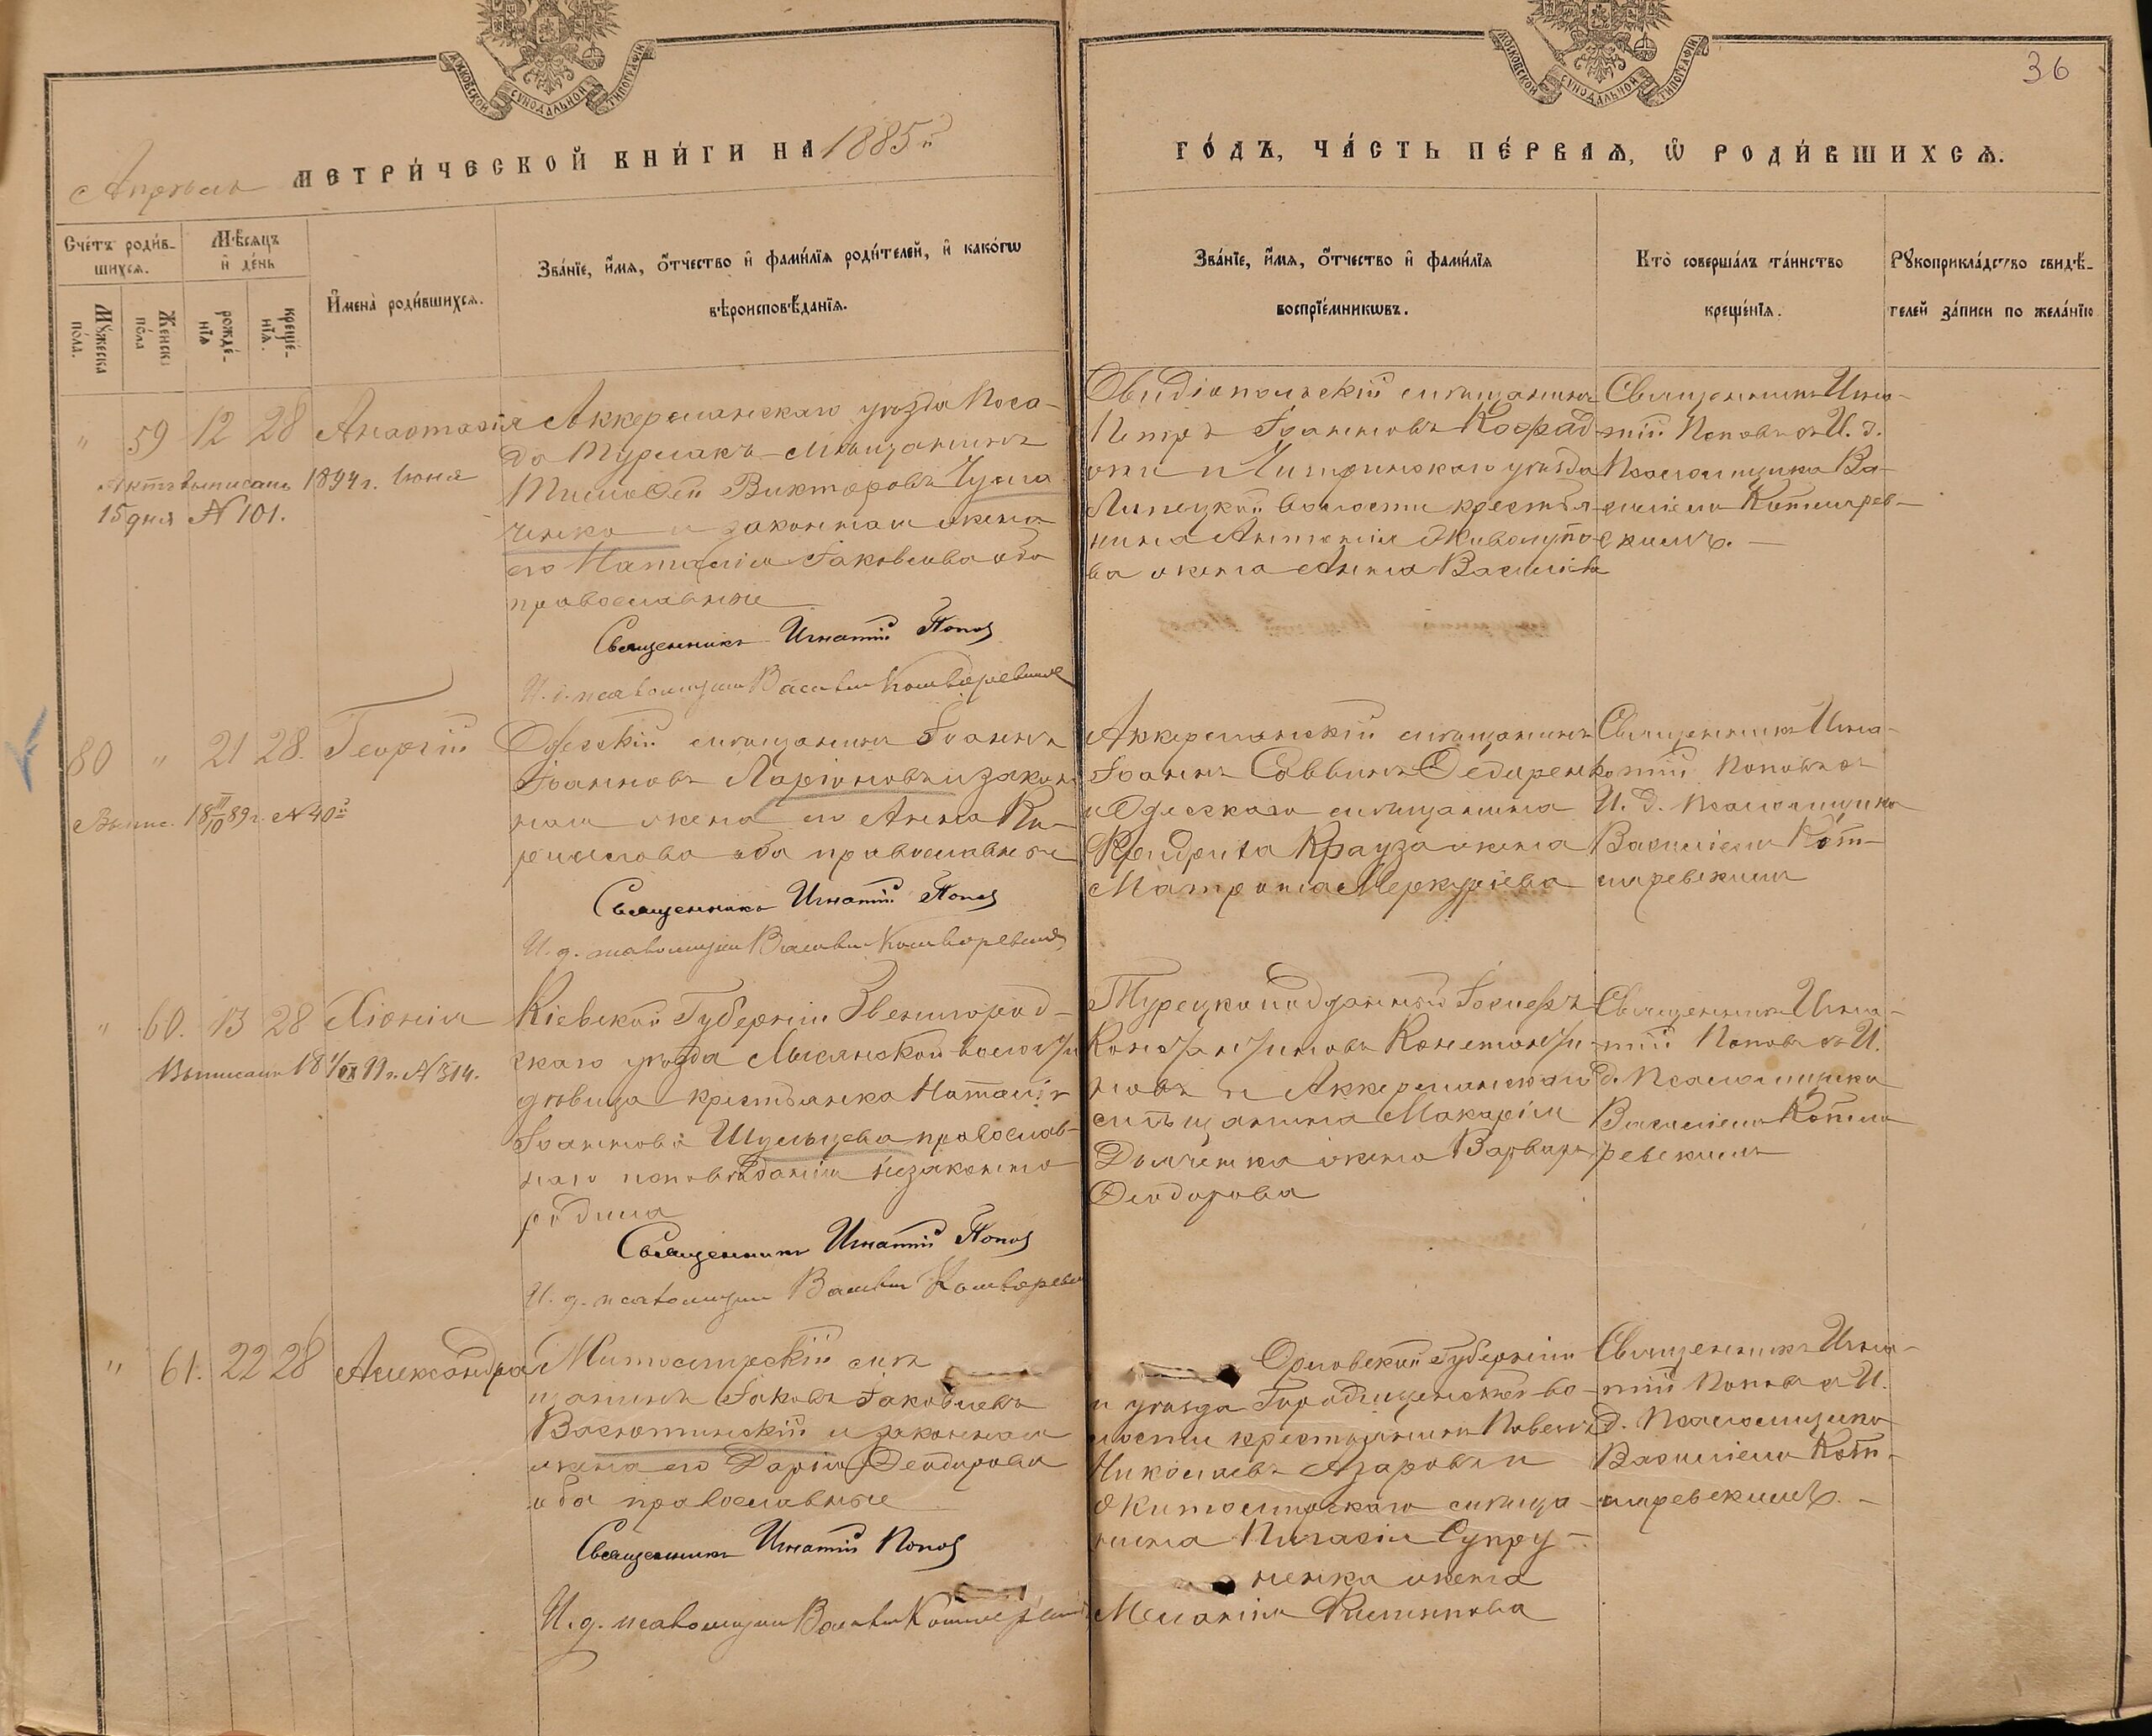 МОСКОВСКОЙ СУНОДАЛЬНОЙ ТИПОГРАФІИ
МОСКОВСКОЙ СУНОДАЛЬНОЙ ТИПОГРАФІИ
36
Апрель МЕТРИ́ЧЕСКОЙ КНИ́ГИ НА 1885й
ГО́ДЪ, ЧА́СТЬ ПЕ́РВАЯ, Ѽ РОДИ́ВШИХСЯ.
Сче́тъ роди́в-
шихся.
Мѣ́сяцъ
и҆ де́нь
Мꙋ́жеска
по́ла.
Же́нска
по́ла
рожде́-
нїя
креще́-
нїя.
И҆мена̀ роди́вшихся.
Зва́нїе, и҆́мя, ѻ҆́тчество и҆ фами́лїя роди́телей, и҆ како́гѡ
вѣроисповѣ́данїя.
Зва́нїе, и҆́мя, ѻ҆́тчество и҆ фами́лїя
воспрїе́мникѡвъ.
Кто̀ соверша́лъ та́инство
креще́нїя.
Рꙋкоприкла́дство свидѣ́-
телей за́писи по жела́нїю
" 59 12 28 Анастасія
Актъ выписанъ 1894 г. Июня
15 дня № 101.
Аккерманскаго уѣзда Поса-
да Турлакъ мѣщанинъ
Тимофей Викторовъ Чума
ченко и законная жена
его Наталія Іаковлева оба
православные
Священникъ Игнатій Попов
И. д. псаломщика Василій Котляревский
Овидіопольскій мѣщанинъ
Петръ Іоанновъ
и
Липецкой волости крестья-
нина Антонія
ва жена Анна Василіева
Священникъ Игна-
тій Поповъ съ И. д.
Псаломщика Ва-
силіемъ Котлярев-
скимъ.
80 " 21 28. Георгій
Выпис. 18 III/10 89 г. № 40й
Одесскій мѣщанинъ Іоаннъ
Іоанновъ Ларіоновъ и закон
ная жена его Анна Ки-
риллова оба православные
Священникъ Игнатій Попов
И. д. псаломщика Василій Котляревский
Аккерманскій мѣщанинъ
Іоаннъ Саввинъ Федоренко
и Одесскаго мѣщанина
Крауза жена
Матрона Меркуріева
Священникъ Игна-
тій Поповъ съ
И. д. Псаломщика
Василіемъ Кот-
ляревскимъ
" 60. 13 28 Хіонія
Выписанъ № 314.
Кіевской Губерніи Звенигород-
скаго уѣзда Лысянской волости
дѣвица крестьянка Наталія
Іоаннова Шульцева православ-
наго исповѣданія незаконно
родила
Священникъ Игнатій Попов
И. д. псаломщика Василій Котляревский
Турецкоподданный Іосифъ
Константиновъ Константи-
новъ и Аккерманскаго
мѣщанина Макарія
жена Варвара
Феодорова
Священникъ Игна-
тій Поповъ съ И.
д. Псаломщика
Василіемъ Котля
ревскимъ
" 61. 22 28 Александра
Житомирскій мѣ
щанинъ Іаковъ Іаковлевъ
Васютинскій и законная
жена его Дарія Феодорова
оба православные
Священникъ Игнатій Попов
И. д. псаломщика Василій Котляревский
Орловской Губерніи
и уѣзда Городищенской во-
лости крестьянинъ Павелъ
Николаевъ Азаровъ и
Житомирскаго мѣща-
нина Пигасія Супру-
ненка жена
Меланія Филиппова
Священникъ Игна-
тій Поповъ съ И.
д. Псаломщика
Василіемъ Кот-
ляревскимъ.